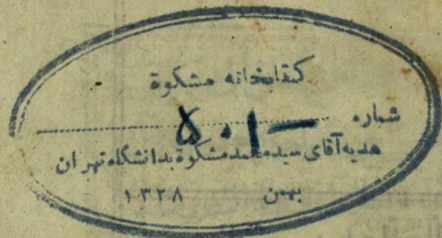 کتابخانه مشکوة
شماره ۵۰۱
هدیه آقای سید محمد مشکوة بدانشگاه تهران
بهمن ۱۳۲۸